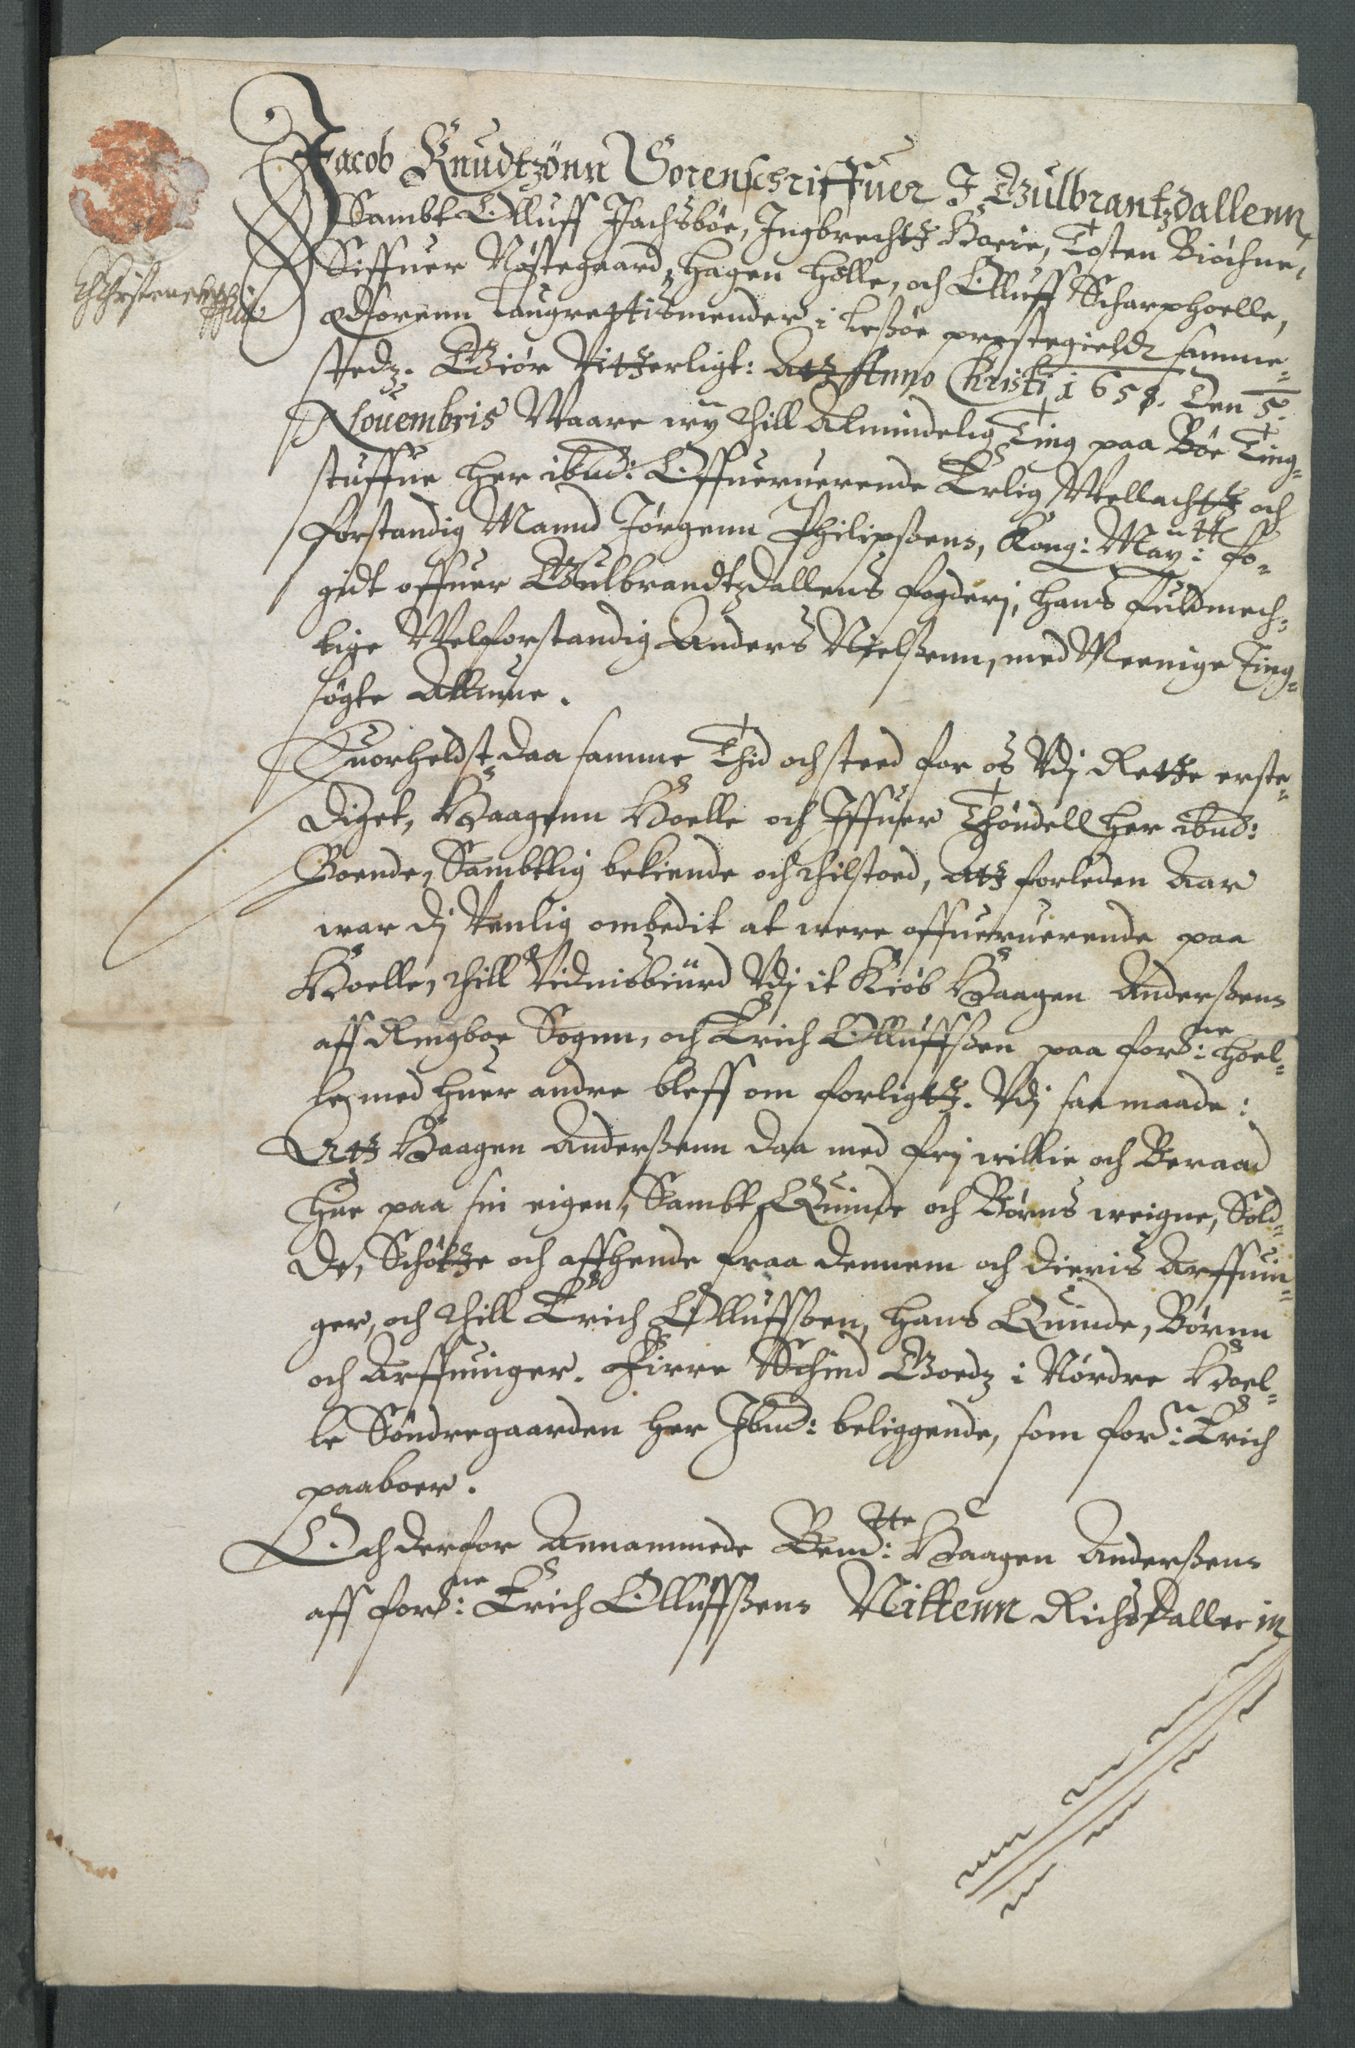 Jacob Knudtzönn Sorenschriffuer I Gulbrantzdallenn,
Sambt Olluff Isachsböe, Ingbrecht Hoeie, Tosten Biöchne,
Siffuer Nøstegaard, Hagen Holle, och Olluff Scharphoelle,
Edsorenn Laugrettismender i Lessøe prestegieldt samme-
stedz. Giør Vitterligt: Att Anno Christi 1658. Den 5.
Nouembris Waare wy thill Almindelig Ting paa Bøe Ting-
stuffue her ibnd: Offueruerende Erlig Wellacht och
forstandig Mannd Jørgenn Philipsens, Kong: May:tt fo-
gidt offuer Gulbrandtzdallens fogderj, hans fuldmech-
tige Welforstandig Anders Nielssenn, med Meenige Ting-
søgte Allmue.
Huorheldst daa samme Thid och sted for os Vdj Rette erste-
diget, Haagenn Hoelle och Iffuer Thöndell her ibnd:
Boende, Sambtlig bekiende och thilstoed, Att forleden Aar
war dj Venlig ombedit at were offueruerende paa
Hoelle, thill Vidnisbiurd Vdj it Kiöb Haagen Anderssens
aff Ringboe Sognn, och Erich Olluffssen paa for:ne Hoel-
le, med huer andre bleff om forligt. Vdj saa maade:
Att Haagen Anderssenn daa med frj willie och Beraad
Hue paa sin eigen, Sambt Quinde och Børns weigne, Sold-
de, Schøtte och affhende fraa dennem och dieris Arffuin-
ger, och thill Erich Olluffssen, hans Quinde, Børnn
och Arffuinger. Firre Schind Goedz i Nørdre Hoel-
le Søndregaarden her Ibnd: beliggende, som for:n Erich
paaboer.
Och derfor Annammede Bem:tte Haagen Anderssens
aff for:ne Erich Olluffssens Nittenn Richsdaller in